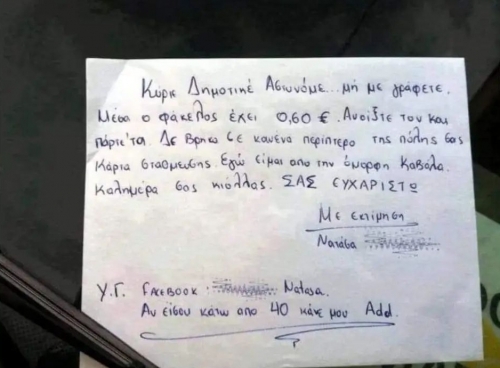 Κύριε Δημοτικέ Αστυνόμε... μή με γράφετε.
Μέσα ο φάκελος έχει 0,60 €. Ανοίξτε τον και
πάρτε τα. Δε βρήκα σε κανένα περίπτερο της πόλης σας
κάρτα στάθμευσης. Εγώ είμαι από την όμορφη Καβάλα.
Καλημέρα σας κιόλλας. ΣΑΣ ΕΥΧΑΡΙΣΤΩ
Με εκτίμηση
Νατάσα
Υ.Γ. FACEBOOK : Natasa.
Αν είσαι κάτω από 40 κάνε μου Add.